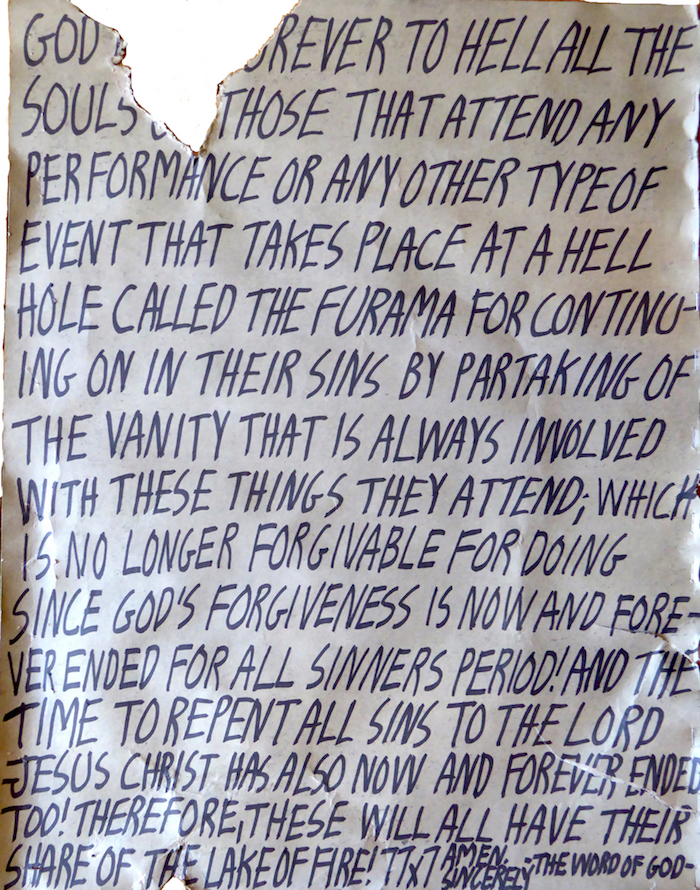 GOD REVER TO HELL ALL THE
SOULS THOSE THAT ATTEND ANY
PERFORMANCE OR ANY OTHER TYPE OF
EVENT THAT TAKES PLACE AT A HELL
HOLE CALLED THE FURAMA FOR CONTINU-
ING ON IN THEIR SINS BY PARTAKING OF
THE VANITY THAT IS ALWAYS INVOLVED
WITH THESE THINGS THEY ATTEND; WHICH
IS NO LONGER FORGIVABLE FOR DOING
SINCE GOD'S FORGIVENESS IS NOW AND FORE-
VER ENDED FOR ALL SINNERS PERIOD! AND THE
TIME TO REPENT ALL SINS TO THE LORD
JESUS CHRIST HAS ALSO NOW AND FOREVER ENDED
TOO! THEREFORE, THESE WILL ALL HAVE THEIR
SHARE OF THE LAKE OF FIRE! 77x7 AMEN. SINCERELY -THE WORD OF GOD-